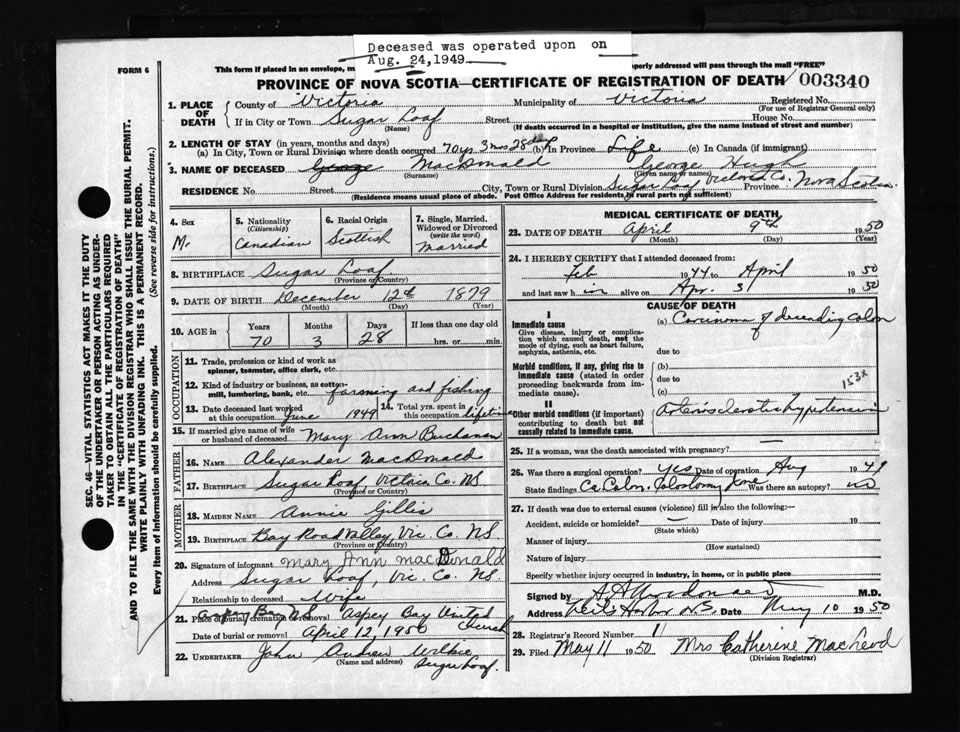 Deceased was operated upon on
Aug. 24,1949
FORM 6
This form if placed in an envelope, properly addressed will pass through the mail "FREE"
PROVINCE OF NOVA SCOTIA—CERTIFICATE OF REGISTRATION OF DEATH 003340
1. PLACE OF DEATH
County of Victoria Municipality of Victoria Registered No.
(For use of Registrar General only)
If in City or Town Sugar Loaf Street House No.
(Name) (If death occurred in a hospital or institution, give the name instead of street and number)
2. LENGTH OF STAY (in years, months and days)
(a) In City, Town or Rural Division where death occurred 70 yrs 3 mos 28 days (b) In Province Life (c) In Canada (if immigrant)
3. NAME OF DECEASED George MacDonald George Hugh
(Surname) (Given name or names)
RESIDENCE No. Street City, Town or Rural Division Sugar Loaf, Victoria Co. Province Nova Scotia.
(Residence means usual place of abode. Post Office Address for residents in rural parts not sufficient)
4. Sex M.
5. Nationality (Citizenship) Canadian
6. Racial Origin Scottish
7. Single, Married, Widowed or Divorced (write the word) Married
8. BIRTHPLACE Sugar Loaf
(Province or Country)
9. DATE OF BIRTH December 12th 1879
(Month) (Day) (Year)
10. AGE in Years Months Days If less than one day old
70 3 28 hrs. or min.
OCCUPATION
11. Trade, profession or kind of work as
spinner, teamster, office clerk, etc.
12. Kind of industry or business, as cotton-
mill, lumbering, bank, etc. farming and fishing
13. Date deceased last worked at this occupation June 1949 14. Total yrs. spent in this occupation lifetime
15. If married give name of wife or husband of deceased Mary Ann Buchanan
FATHER
16. NAME Alexander MacDonald
17. BIRTHPLACE Sugar Loaf, Victoria Co. NS
(Province or Country)
MOTHER
18. MAIDEN NAME Annie Gillis
19. BIRTHPLACE Bay Road Valley, Vic. Co. NS.
(Province or Country)
20. Signature of informant Mary Ann MacDonald
Address Sugar Loaf, Vic. Co. NS.
Relationship to deceased Wife
21. Place of burial, cremation or removal Aspey Bay United Church
Aspey Bay NS
Date of burial or removal April 12, 1950
22. UNDERTAKER John Andrew Wilkie
(Name and address) Sugar Loaf.
MEDICAL CERTIFICATE OF DEATH
23. DATE OF DEATH April 9th 1950
(Month) (Day) (Year)
24. I HEREBY CERTIFY that I attended deceased from:
Feb 1944 to April 1950
and last saw him alive on Apr. 3 1950
CAUSE OF DEATH
I
Immediate cause
Give disease, injury or complication which caused death, not the mode of dying, such as heart failure, asphyxia, asthenia, etc.
(a) Carcinoma of descending colon
due to
Morbid conditions, if any, giving rise to immediate cause (stated in order proceeding backwards from immediate cause).
(b)
due to
(c)
153X
II
Other morbid conditions (if important) contributing to death but not causally related to immediate cause.
Arteriosclerotic hypertension
25. If a woman, was the death associated with pregnancy? –
26. Was there a surgical operation? yes Date of operation Aug 1949
State findings Ca Colon. Colostomy done Was there an autopsy? no
27. If death was due to external causes (violence) fill in also the following:—
Accident, suicide or homicide? Date of injury 19
(State which)
Manner of injury
(How sustained)
Nature of injury
Specify whether injury occurred in industry, in home, or in public place
Signed by M.D.
Address Neil's Harbor NS. Date May 10 1950
28. Registrar's Record Number 1
29. Filed May 11 1950 Mrs Catherine MacLeod
(Division Registrar)
SEC. 46—VITAL STATISTICS ACT MAKES IT THE DUTY
OF THE UNDERTAKER OR PERSON ACTING AS UNDER-
TAKER TO OBTAIN ALL THE PARTICULARS REQUIRED
IN THE "CERTIFICATE OF REGISTRATION OF DEATH"
AND TO FILE THE SAME WITH THE DIVISION REGISTRAR WHO SHALL ISSUE THE BURIAL PERMIT.
WRITE PLAINLY WITH UNFADING INK. THIS IS A PERMANENT RECORD.
Every item of information should be carefully supplied. (See reverse side for instructions.)